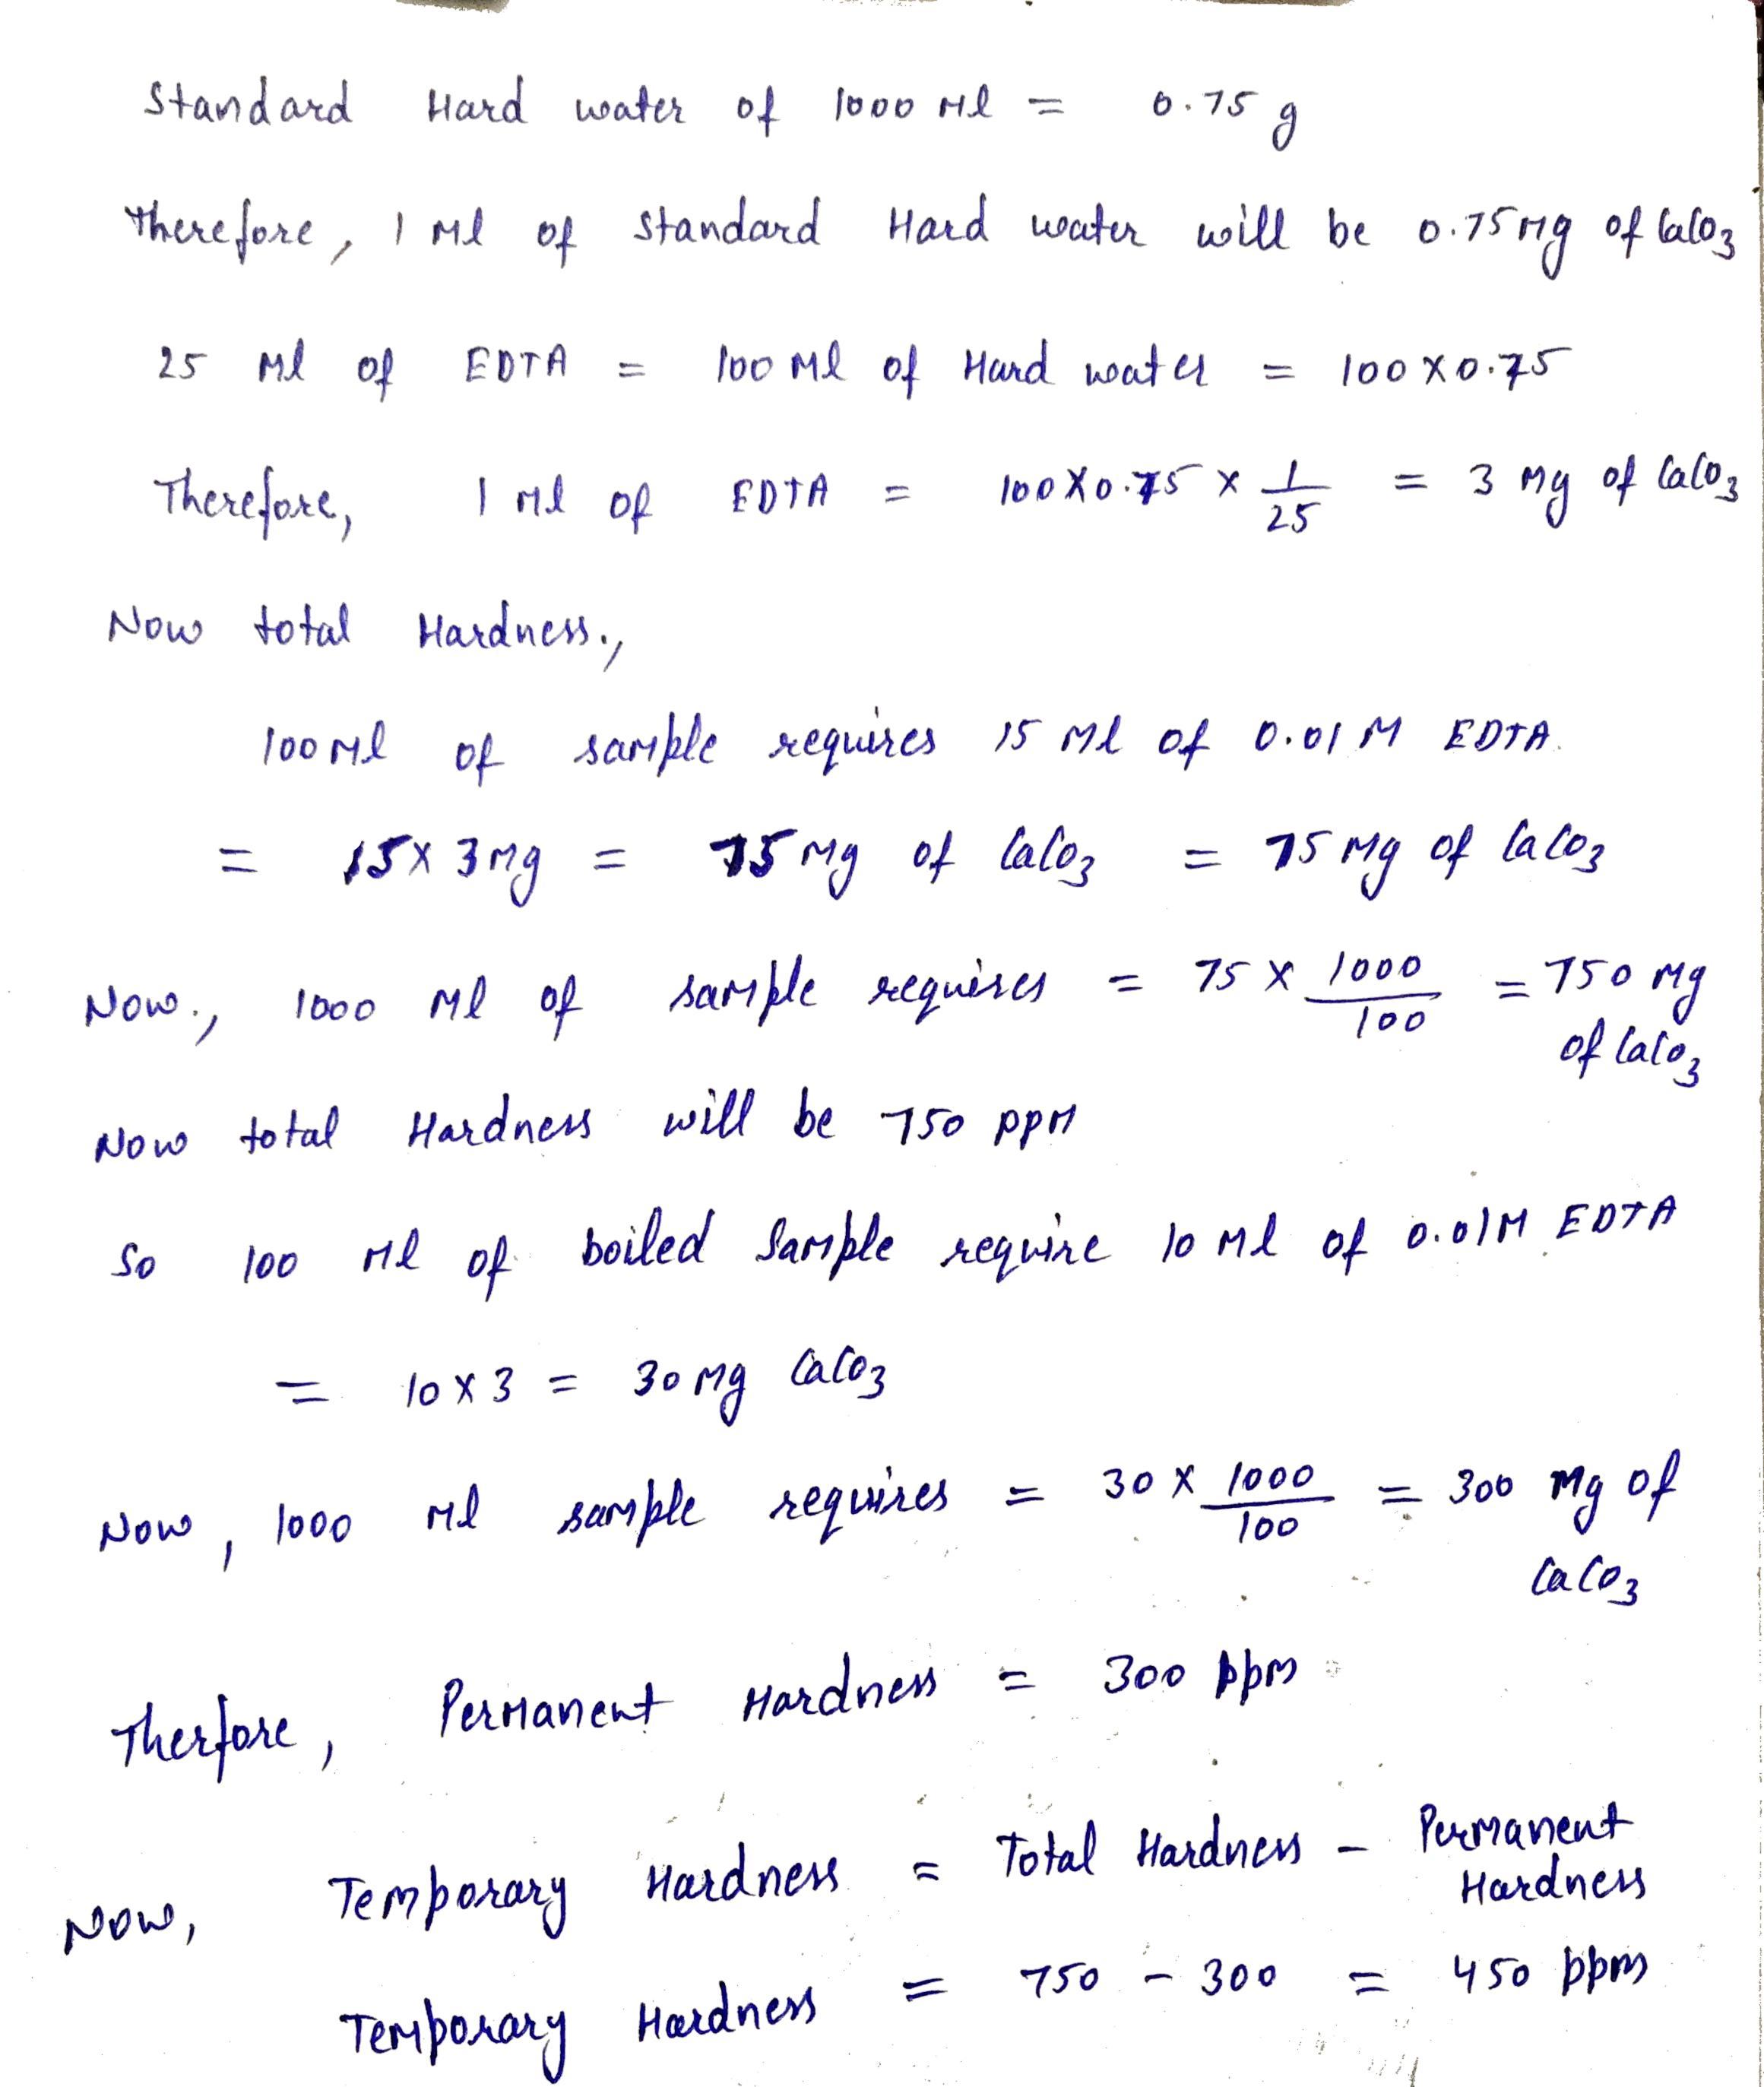 Standard Hard water of 1000 Ml = 0.75 g
Therefore, 1 Ml of standard Hard water will be 0.75 Mg of CaCo3
25 Ml of EDTA = 100 Ml of Hard water = 100 X 0.75
Therefore, 1 Ml of EDTA = 100 X 0.75 X 1/25 = 3 Mg of CaCo3
Now total Hardness.,
100 Ml of sample requires 15 Ml of 0.01 M EDTA.
= 15 X 3 Mg = 75 Mg of CaCo3 = 75 Mg of CaCo3
Now., 1000 Ml of sample requires = 75 X 1000/100 = 750 Mg
of CaCo3
Now total Hardness will be 750 ppM
So 100 Ml of boiled Sample require 10 Ml of 0.01M EDTA
= 10 X 3 = 30 Mg CaCo3
Now, 1000 Ml sample requires = 30 X 1000/100 = 300 Mg of
CaCo3
Therfore, Permanent Hardness = 300 ppm
Now, Temporary Hardness = Total Hardness - Permanent
Hardness
Temporary Hardness = 750 - 300 = 450 ppm